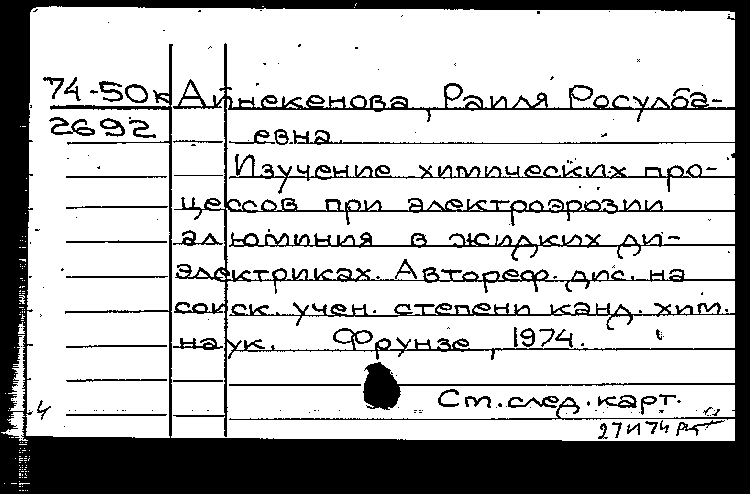 74-50к Айнекенова, Раиля Росулба-
2692 евна.
Изучение химических про-
цессов при электроэрозии
алюминия в жидких ди-
электриках. Автореф. дис. на
соиск. учен. степени канд. хим.
наук. Фрунзе, 1974.
Ст. след. карт.
4
27 И 74